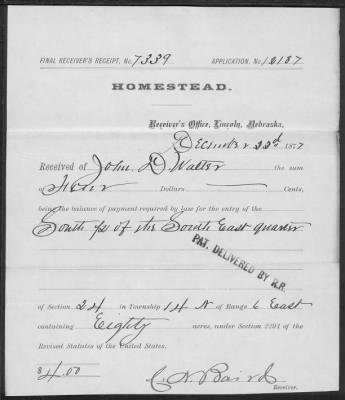 FINAL RECEIVER'S RECEIPT, No. 7339 APPLICATION, No. 12187
HOMESTEAD.
Receiver's Office, Lincoln, Nebraska,
December 22d 1877
Received of John D Walter the sum
of Four Dollars Cents,
being the balance of payment required by law for the entry of the
South ½ of the South East quarter
PAT. DELIVERED BY R.R.
of Section 24 in Township 14 N of Range 6 East
containing Eighty acres, under Section 2291 of the
Revised Statutes of the United States.
$4.00
C. N. Baird
Receiver.